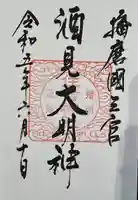 播磨國三宮
酒見大明神
令和五年六月十日